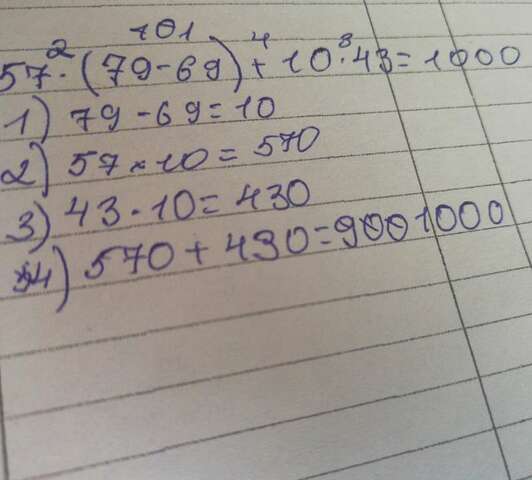 2 101 4 3
57·(79-69)+10·43=1000
1) 79-69=10
2) 57×10=570
3) 43·10=430
4) 570+430=9001000